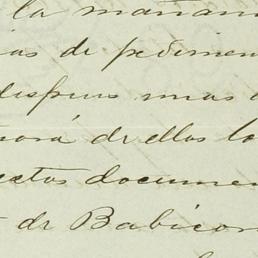 la mañana
ias de pedimen
despues unas
ará de ellos lo
estos documen
de Babicor